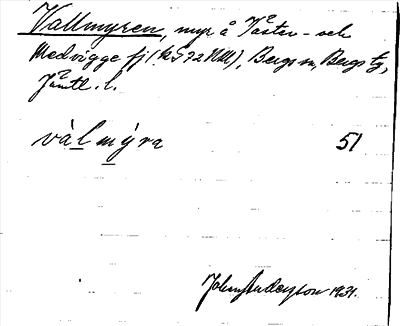 Vallmyren, myr å Väster- och
Medvigge fj (k S 72 NM), Bergs sn, Bergs tg,
Jämtl. l.
vàlmýra 51
John Anderson 1931.